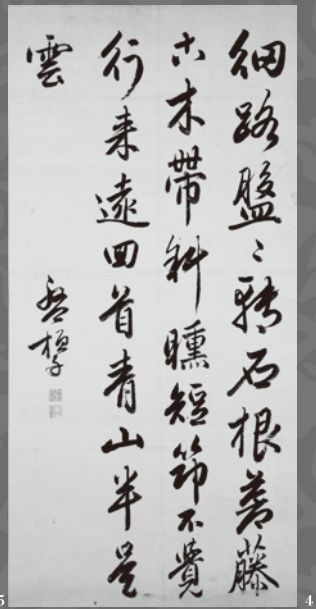 細路盤〻轉石根蒼藤
古木帶斜曛短筇不覺
行来遠回首青山半是
雲
5
4